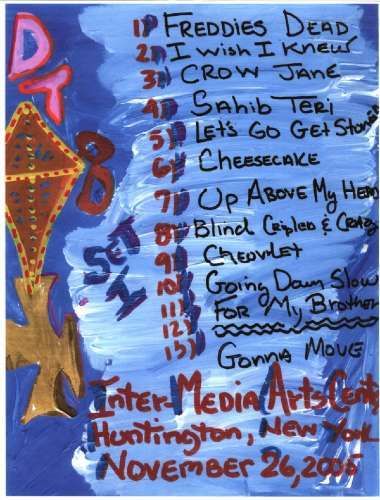 DT
8
SET I
1) FREDDIES DEAD
2) I WISH I KNEW
3) CROW JANE
4) SAHIB TERI
5) LET'S GO GET Stoned
6) CHEESECAKE
7) UP ABOVE MY HEAD
8) Blind, Cripled & Crazy
9) CHEVROLET
10) Going Down Slow
11) FOR MY Brother
12)
13) GONNA MOVE
Inter-Media Arts Center
Huntington, New York
NOVEMBER 26, 2005